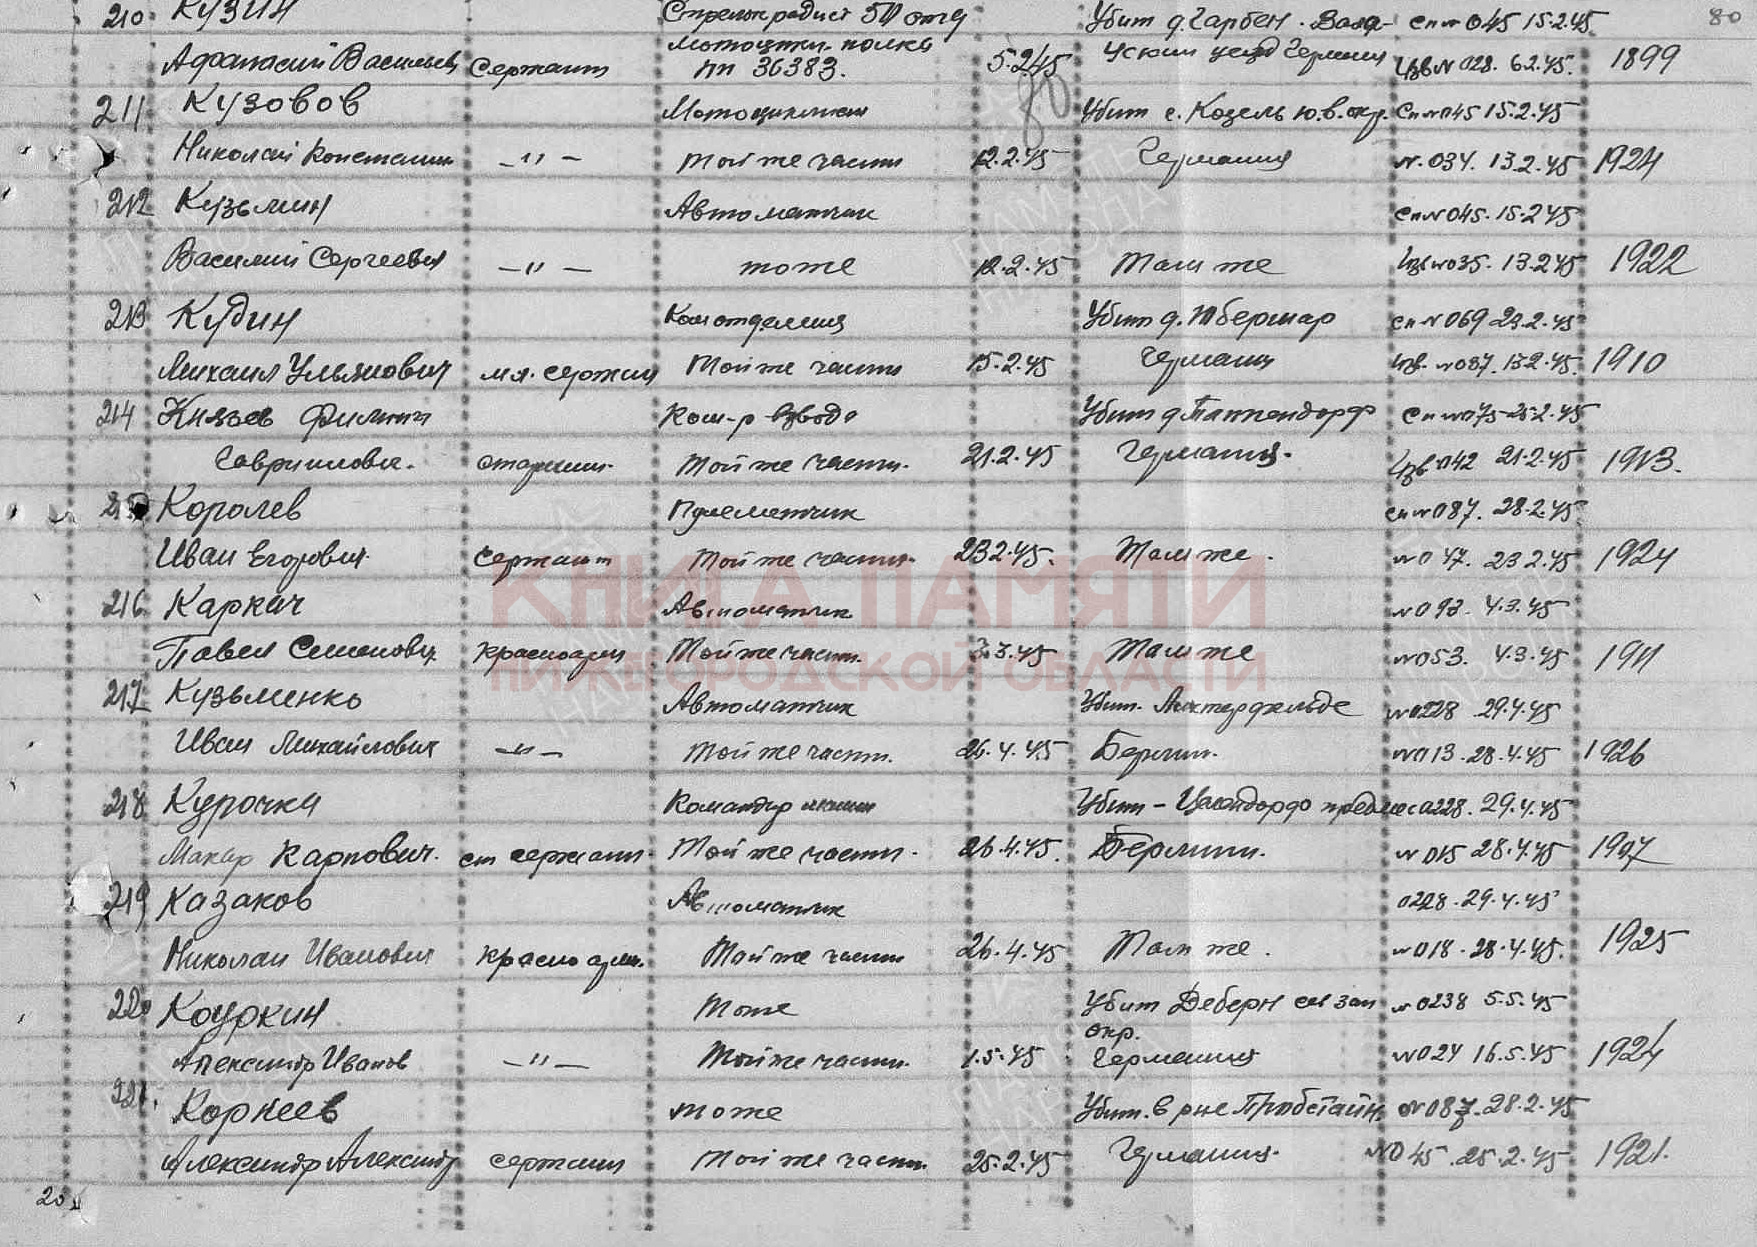 210 Кузин Стрелок радист 50 отд Убит д. Гарбен. Вала- сп№ 045 15.2.45 80
Афанасий Васильев Сержант мотоцикл. полка пп 36383. 5.2.45 уезд Германия Изв№ 028. 6.2.45. 1899
211 Кузовов Мотоциклист Убит с. Козель ю.в. окр. Сп№045 15.2.45
Николай Константин –"– Той же части 12.2.45 Германия №. 034. 13.2.45 1924
212 Кузьмин Автоматчик сп№045. 15.2.45
Василий Сергеевич –"– тоже 12.2.45 Там же Изв№035. 13.2.45 1922
213 Кудин Ком отделения Убит д. сп№069 23.2.45
Михаил Ульянович мл. сержан Той же части 15.2.45 Германия Изв. №037. 13.2.45. 1910
214 Князев Филипп Ком-р взвода Убит д. Паппендорф Сп№075 25.2.45
Гавриилович. старшин. Той же части. 21.2.45 Германия. Изв. 042 21.2.45 1913.
Королев Пулеметчик сп№087. 28.2.45
Иван Егорович. сержант Той же части. 23.2.45. Там же. №047. 23.2.45 1924
216 Каркач Автоматчик 4.3.45
Павел Семенович красноарм Той же части. 3.3.45 Там же №053. 4.3.45 1911
217 Кузьменко Автоматчик Убит. Лихтерфельде №0228. 29.4.45
Иван Михайлович –"– Той же части. 26.4.45 Берлин. №013. 28.4.45 1926
218 Курочка Командир машин Убит – предмес 0228. 29.4.45
Макар Карпович. ст сержант Той же части. 26.4.45. Берлин. №015 28.4.45 1907
219 Казаков Автоматчик 0228. 29.4.45
Николай Иванович красноарм. Той же части 26.4.45 Там же. №018. 28.4.45. 1925
220 Коуркин Тоже Убит Деберн сев зап окр. №0238 5.5.45
Александр Иванов –"– Той же части. 1.5.45 Германия №024 16.5.45 1924
221. Корнеев тоже Убит. в рне Прибстайн №087. 28.2.45
Александр Александр сержант Той же части. 25.2.45 Германия. №045. 25.2.45 1921.
КНИГА ПАМЯТИ
НИЖЕГОРОДСКОЙ ОБЛАСТИ